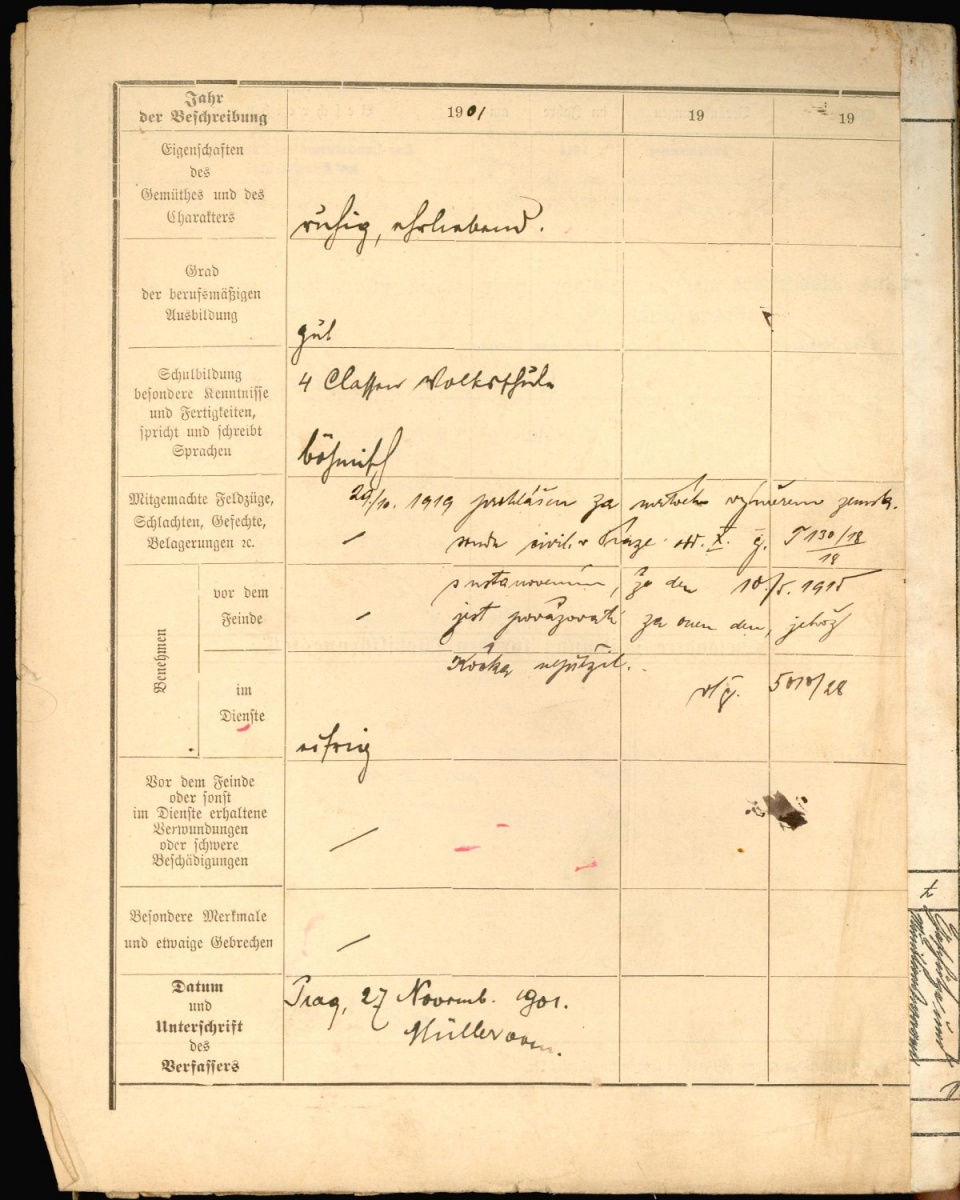 Jahr
der Beschreibung
1901
19
19
Eigenschaften
des
Gemüthes und des
Charakters
ruhig, ehrliebend.
Grad
der berufsmäßigen
Ausbildung
gut
Schulbildung
besondere Kenntnisse
und Fertigkeiten,
spricht und schreibt
Sprachen
4 Classen Volksschule
böhmisch
Mitgemachte Feldzüge,
Schlachten, Gefechte,
Belagerungen ꝛc.
29/10. 1919 prohlášen za mrtvého výměrem zemsk.
soudu civil. v Praze odd. X. č. T 130/18
18
Benehmen
vor dem
Feinde
s ustanovením, že den 10./5. 1915
jest považovati za onen den, jehož
Kočka nepřežil.
č. 5010/28
im
Dienste
eifrig
Vor dem Feinde
oder sonst
im Dienste erhaltene
Verwundungen
oder schwere
Beschädigungen
Besondere Merkmale
und etwaige Gebrechen
Datum
und
Unterschrift
des
Verfassers
Prag, 27 Novemb. 1901.
Müller